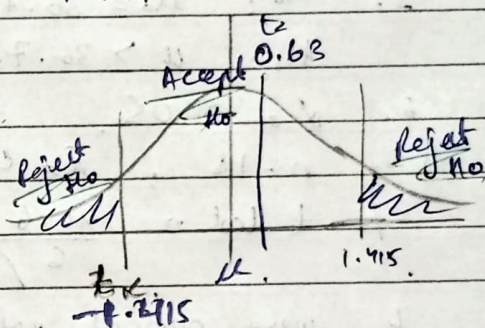 t
0.63
Accept
Ho
Reject
Ho
Reject
Ho
μ
1.415